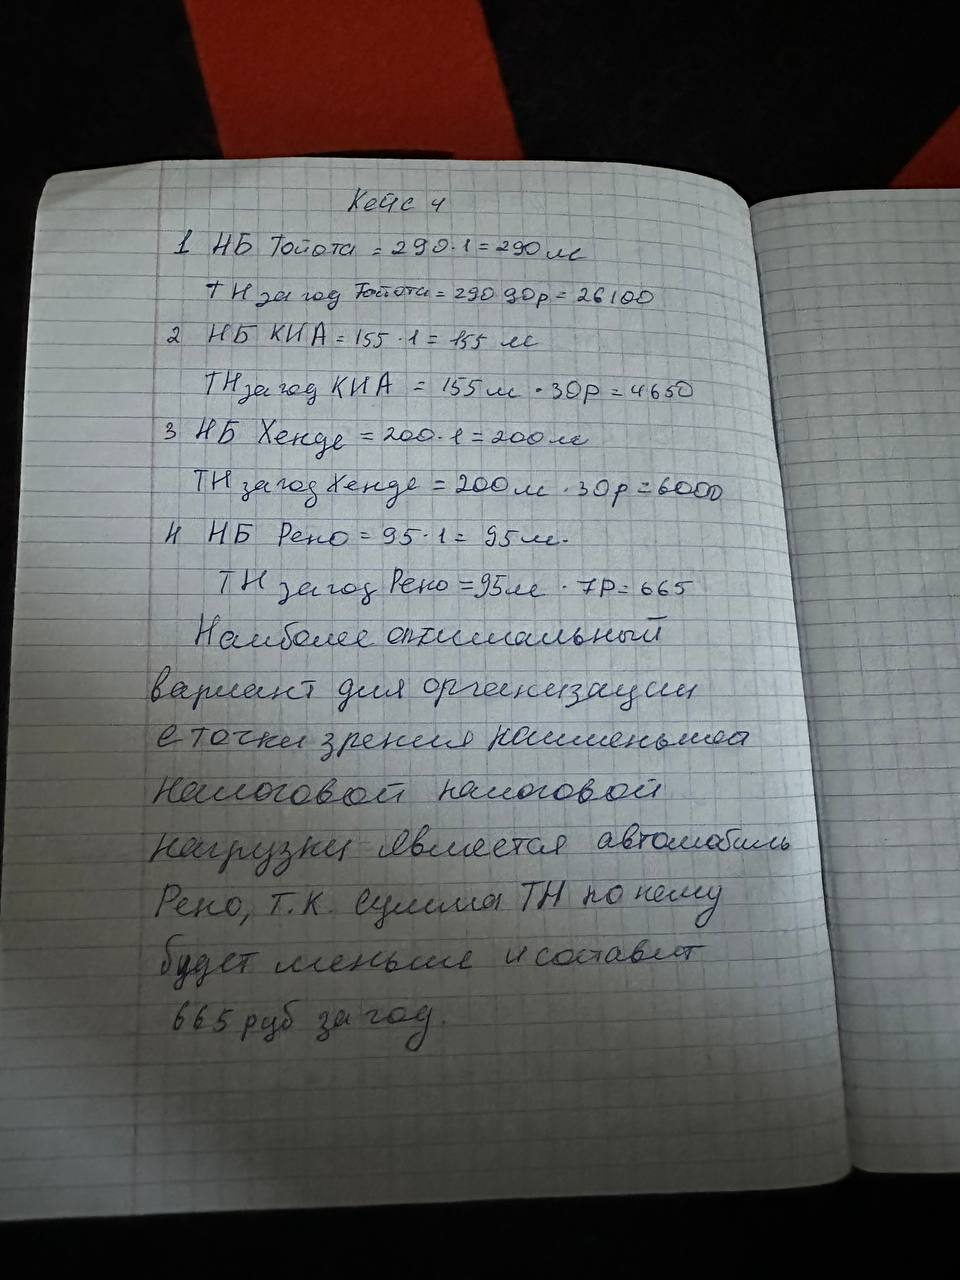 Кейс 4
1 НБ Тойота = 290 · 1 = 290 лс
ТН за год Тойота = 290 90р = 26100
2 НБ КИА = 155 · 1 = 155 лс
ТН за год КИА = 155 лс · 30р = 4650
3 НБ Хенде = 200 · 1 = 200 лс
ТН за год Хенде = 200 лс · 30р = 6000
4 НБ Рено = 95 · 1 = 95 лс.
ТН за год Рено = 95 лс · 7р = 665
Наиболее оптимальный
вариант для организации
с точки зрения наименьшей
налоговой налоговой
нагрузки является автомобиль
Рено, т.к. сумма ТН по нему
будет меньше и составит
665 руб за год.